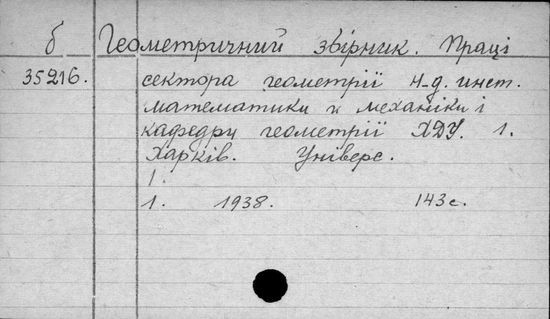 б Геометричний збірник. Праці
35216. сектора геометрії н.д. инст.
математики и механіки і
кафедри геометрії ХДУ. 1.
Харків. Універс.
1.
1. 1938. 143 с.